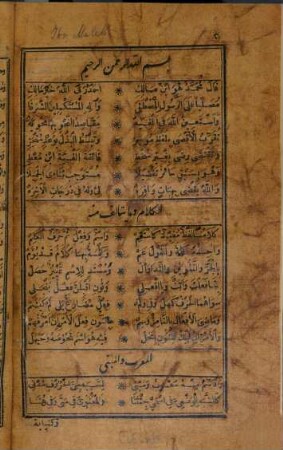 Ibn Malek
بسم الله الرحمن الرحيم
قال محمد هو ابن مالك * احمد ربى الله خير مالك
مصليا على الرسول المصطفى * وآله المستكملين الشرفا
واستعين الله فى الفيه * مقاصد النحو بها محويه
تقرب الاقصى بلفظ موجز * وتبسط البذل بوعد منجز
وتقتضى رضى بغير سخط * فائقة الفية ابن معط
وهو بسبق حائز تفضيلا * مستوجب ثنائى الجميلا
والله يقضى بهبات وافره * لى وله فى درجات الآخره
الكلام وما يتألف منه
كلامنا لفظ مفيد كاستقم * واسم وفعل ثم حرف الكلم
واحده كلمة والقول عم * وكلمة بها كلام قد يؤم
بالجر والتنوين والندا وال * ومسند للاسم تمييز حصل
بتا فعلت واتت ويا افعلى * ونون اقبلن فعل ينجلى
سواهما الحرف كهل وفى ولم * فعل مضارع يلى لم كيشم
وماضى الافعال بالتا مز وسم * بالنون فعل الامر ان امر فهم
والامر ان لم يك للنون محل * فيه هو اسم نحو صه وحيهل
المعرب والمبنى
والاسم منه معرب ومبنى * لشبه من الحروف مدنى
كالشبه الوضعى فى اسمى جئتنا * والمعنوى فى متى وفى هنا
وكنيابة